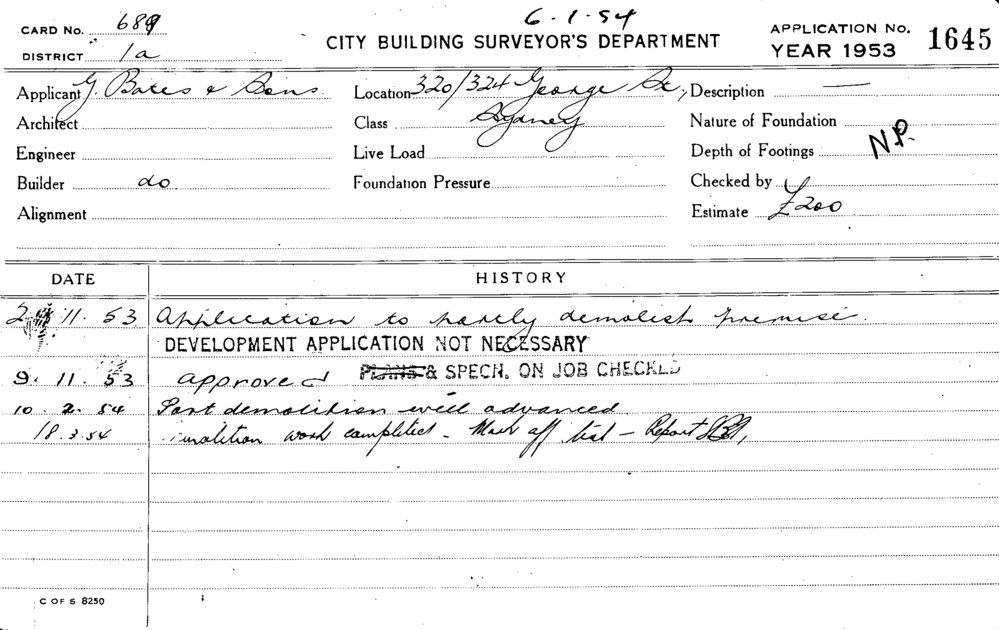 6.1.54
CARD No. 689 CITY BUILDING SURVEYOR'S DEPARTMENT APPLICATION No. 1645
DISTRICT 1a YEAR 1953
Applicant G. Bates & Sons. Location 320/324 George St, Description —
Architect Class Sydney Nature of Foundation
Engineer Live Load Depth of Footings N.P.
Builder do Foundation Pressure Checked by
Alignment Estimate £200
DATE HISTORY
2 11. 53 Application to partly demolish premise.
DEVELOPMENT APPLICATION NOT NECESSARY
9. 11. 53 approved PLANS & SPECN. ON JOB CHECKED
10. 2. 54 Part demolition well advanced.
18.3.54 Demolition work completed - Mark off list - Report
C OF S 8250